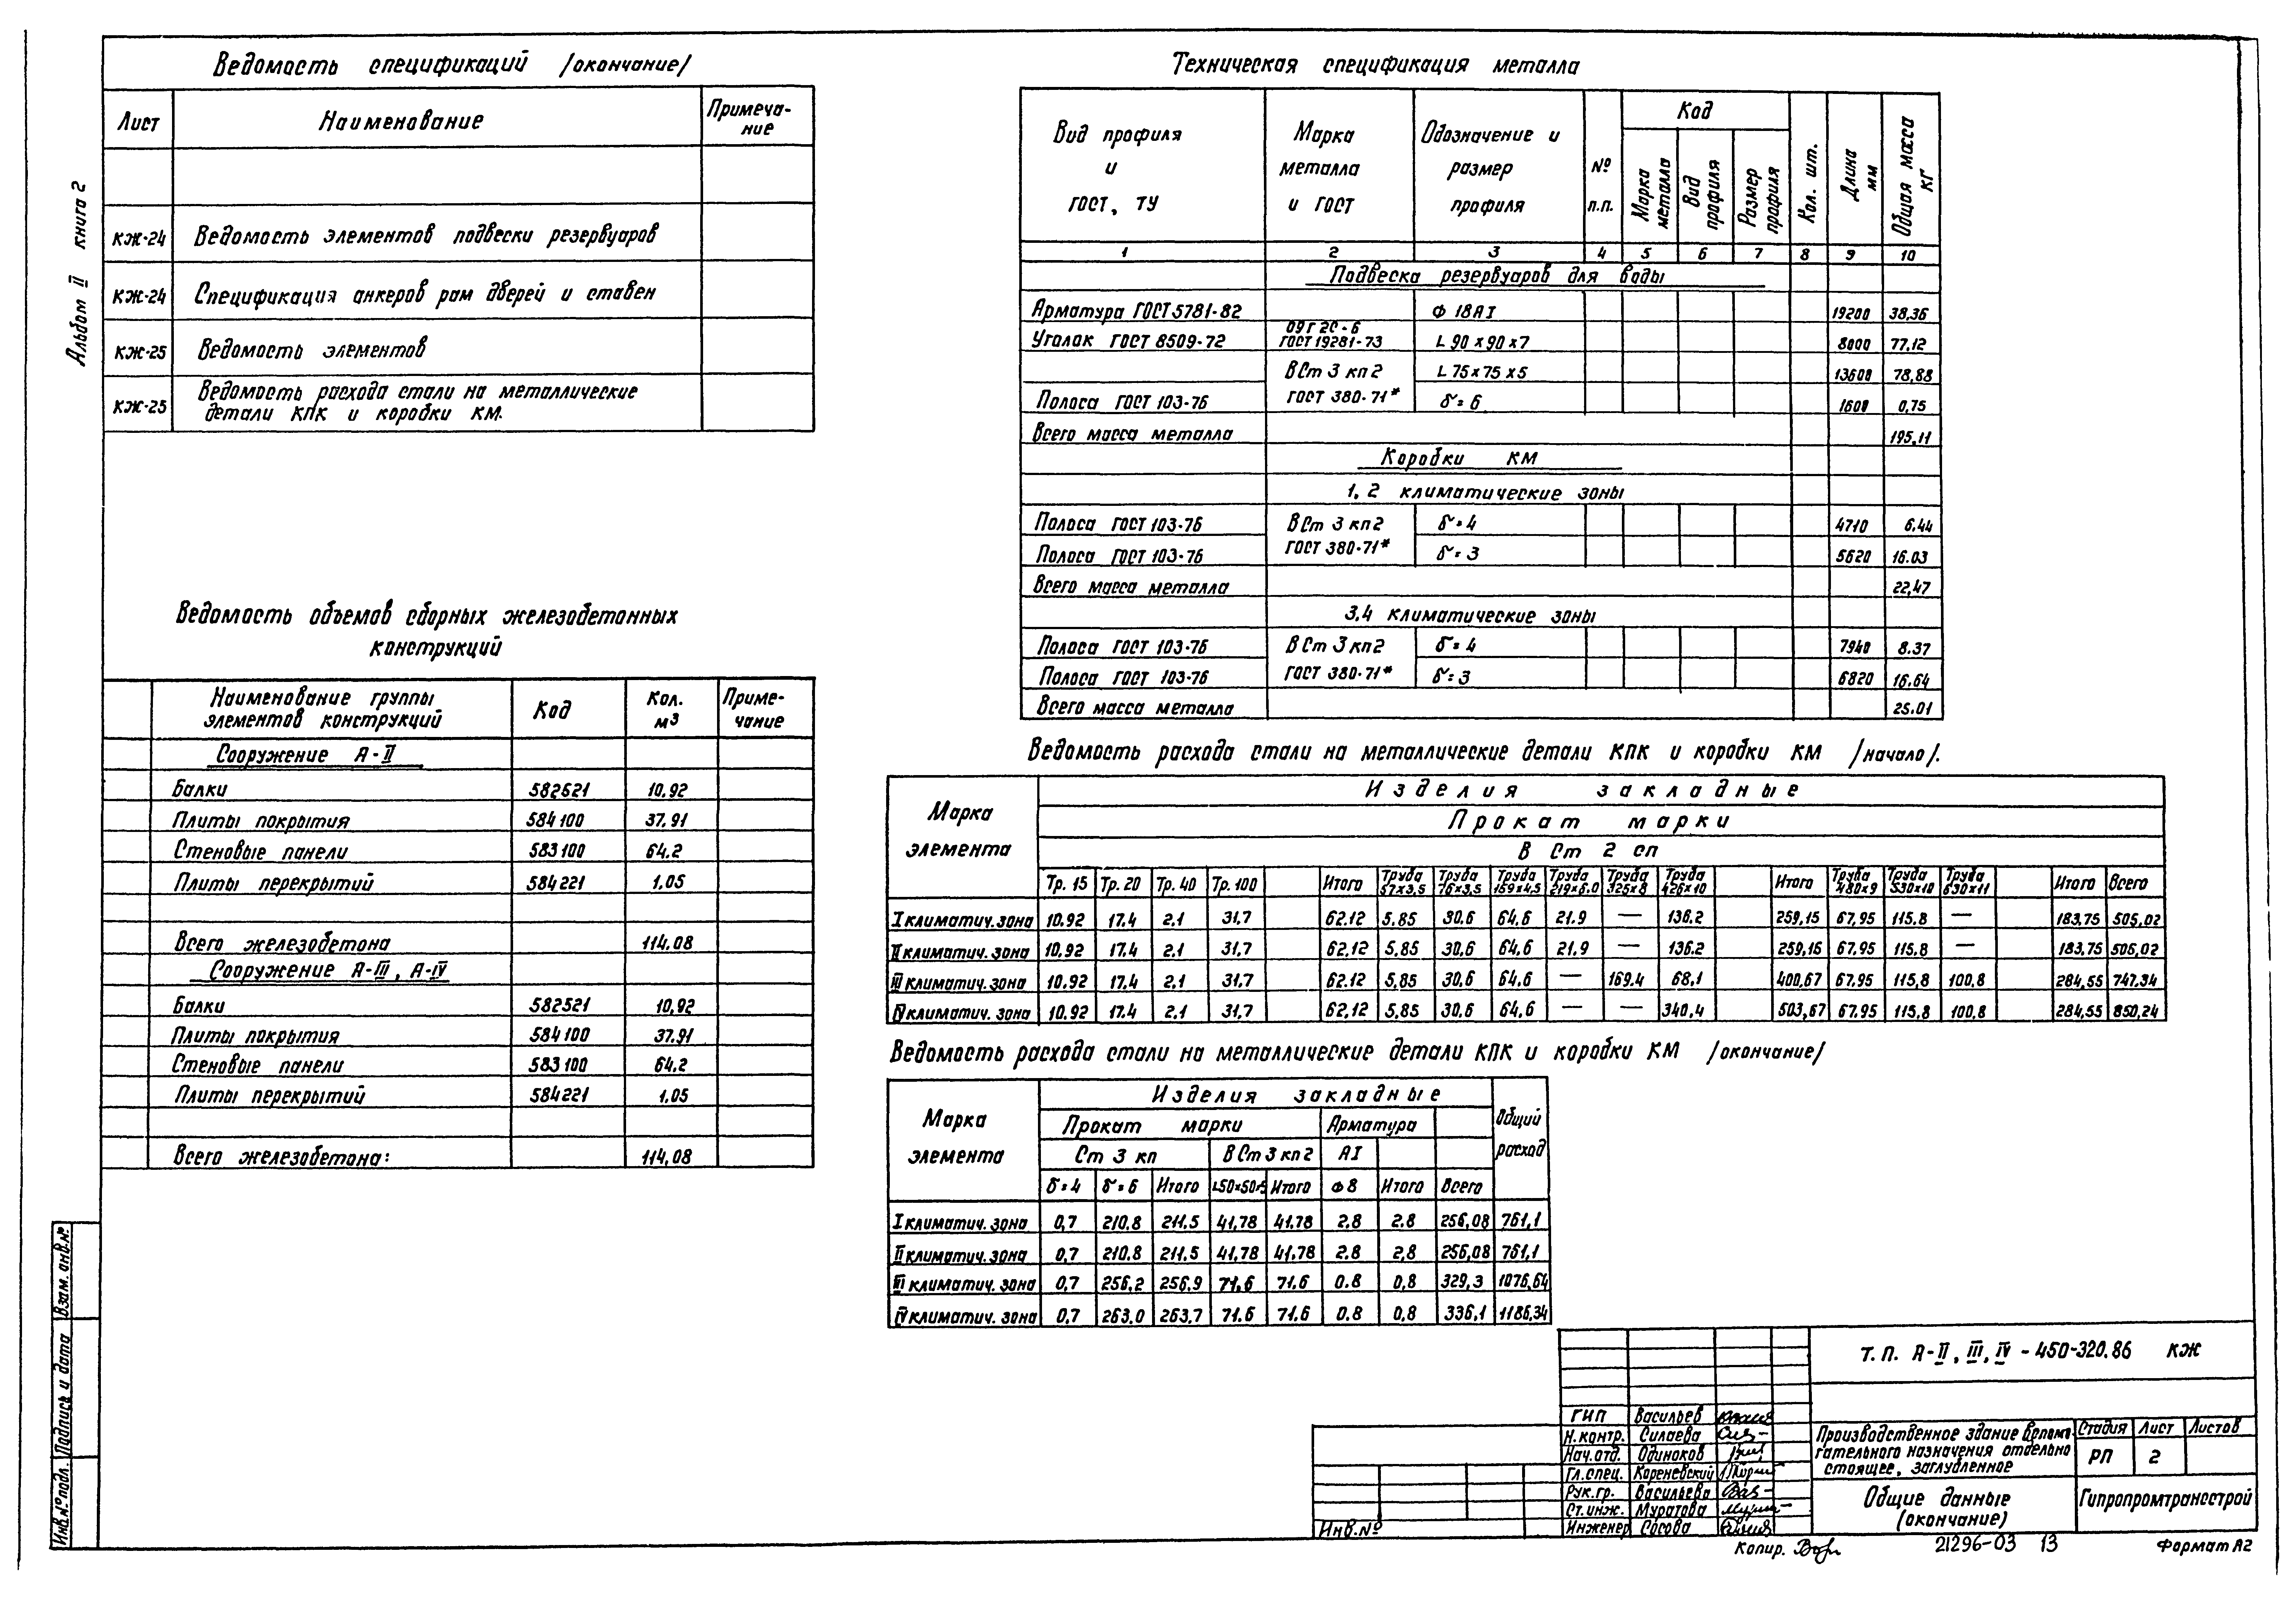 Альбом II книга 2
Ведомость спецификаций /окончание/
Лист Наименование Примеча-
ние
КЖ-24 Ведомость элементов подвески резервуаров
КЖ-24 Спецификация анкеров рам дверей и ставен
КЖ-25 Ведомость элементов
КЖ-25 Ведомость расхода стали на металлические
детали КПК и коробки КМ.
Ведомость объемов сборных железобетонных
конструкций
Наименование группы
элементов конструкций Код Кол.
м3 Приме-
чание
Сооружение А-II
Балки 582521 10,92
Плиты покрытия 584100 37.91
Стеновые панели 583100 64.2
Плиты перекрытий 584221 1,05
Всего железобетона 114,08
Сооружение А-III, А-IV
Балки 582521 10,92
Плиты покрытия 584100 37.91
Стеновые панели 583100 64,2
Плиты перекрытий 584221 1,05
Всего железобетона: 114,08
Техническая спецификация металла
Вид профиля
и
ГОСТ, ТУ
Марка
металла
и ГОСТ
Обозначение и
размер
профиля
№
п.п.
Код
Марка
металла
Вид
профиля
Размер
профиля
Кол. шт.
Длина
мм
Общая масса
кг
1 2 3 4 5 6 7 8 9 10
Подвеска резервуаров для воды
Арматура ГОСТ 5781-82 Ф 18АI 19200 38.36
Уголок ГОСТ 8509-72 09Г2С-6
ГОСТ 19281-73 L 90х90х7 8000 77,12
ВСт 3 кп 2 L 75х75х5 13600 78,88
Полоса ГОСТ 103-76 ГОСТ 380-71* δ=6 1600 0,75
Всего масса металла 195,11
Коробки КМ
1, 2 климатические зоны
Полоса ГОСТ 103-76 ВСт 3 кп2 δ=4 4710 6.44
Полоса ГОСТ 103-76 ГОСТ 380-71* δ=3 5620 16.03
Всего масса металла 22,47
3,4 климатические зоны
Полоса ГОСТ 103-76 ВСт 3 кп2 δ=4 7940 8.37
Полоса ГОСТ 103-76 ГОСТ 380-71* δ=3 6820 16.64
Всего масса металла 25.01
Ведомость расхода стали на металлические детали КПК и коробки КМ /начало/.
Марка
элемента
Изделия закладные
Прокат марки
В Ст 2 сп
Тр. 15 Тр. 20 Тр. 40 Тр. 100 Итого Труба 57х3,5 Труба 76х3,5 Труба 159х4,5 Труба 219х6.0 Труба 325х8 Труба 426х10 Итого Труба 480х9 Труба 530х10 Труба 630х11 Итого Всего
I климатич. зона 10.92 17.4 2.1 31,7 62.12 5.85 30.6 64,6 21.9 — 136.2 259,15 67,95 115.8 — 183,75 505,02
II климатич. зона 10,92 17.4 2.1 31,7 62,12 5,85 30,6 64,6 21,9 — 136.2 259,15 67,95 115.8 — 183,75 505,02
III климатич. зона 10.92 17.4 2.1 31,7 62.12 5,85 30,6 64,6 — 169.4 68,1 400,67 67,95 115,8 100,8 284,55 747.34
IV климатич. зона 10.92 17.4 2.1 31,7 62,12 5,85 30,6 64,6 — — 340,4 503,67 67,95 115,8 100,8 284,55 850,24
Ведомость расхода стали на металлические детали КПК и коробки КМ /окончание/
Марка
элемента
Изделия закладные
Общий
расход
Прокат марки Арматура
Ст 3 кп ВСт 3 кп2 АI
δ=4 δ=6 Итого L50х50х5 Итого Ф8 Итого Всего
I климатич. зона 0,7 210,8 211,5 41,78 41,78 2.8 2.8 256,08 761,1
II климатич. зона 0,7 210.8 211,5 41,78 41,78 2.8 2,8 256,08 761,1
III климатич. зона 0,7 256,2 256,9 71.6 71.6 0.8 0,8 329,3 1076,64
IV климатич. зона 0,7 263,0 263,7 71.6 71.6 0.8 0,8 336,1 1186,34
Взам. инв.№
Подпись и дата
Инв.№подл.
Инв.№
т. п. А-II, III, IV - 450-320.86 КЖ
ГИП Васильев
Н.контр. Силаева
Нач.отд. Одиноков
Гл.спец. Кореневский
Рук.гр. Васильева
Ст.инж. Муратова
Инженер Сосова
Производственное здание вспомо-
гательного назначения отдельно
стоящее, заглубленное
Стадия Лист Листов
РП 2
Общие данные
(окончание)
Гипропромтрансстрой
Копир. 21296-03 13 Формат А2